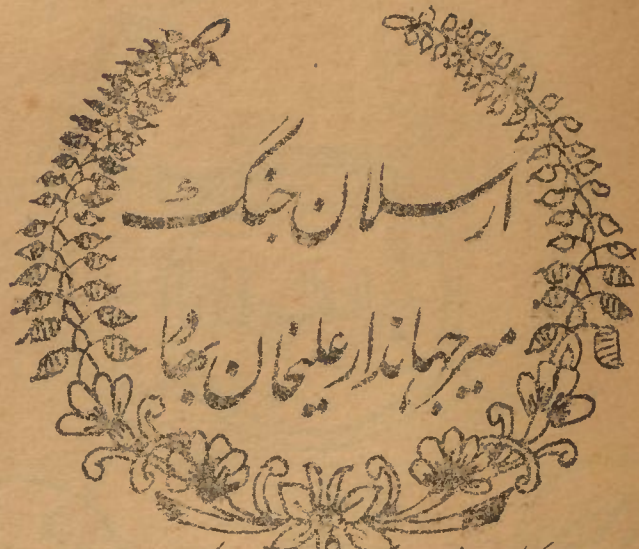 ارسلان جنگ
میر جہاندار علیخان بہادر